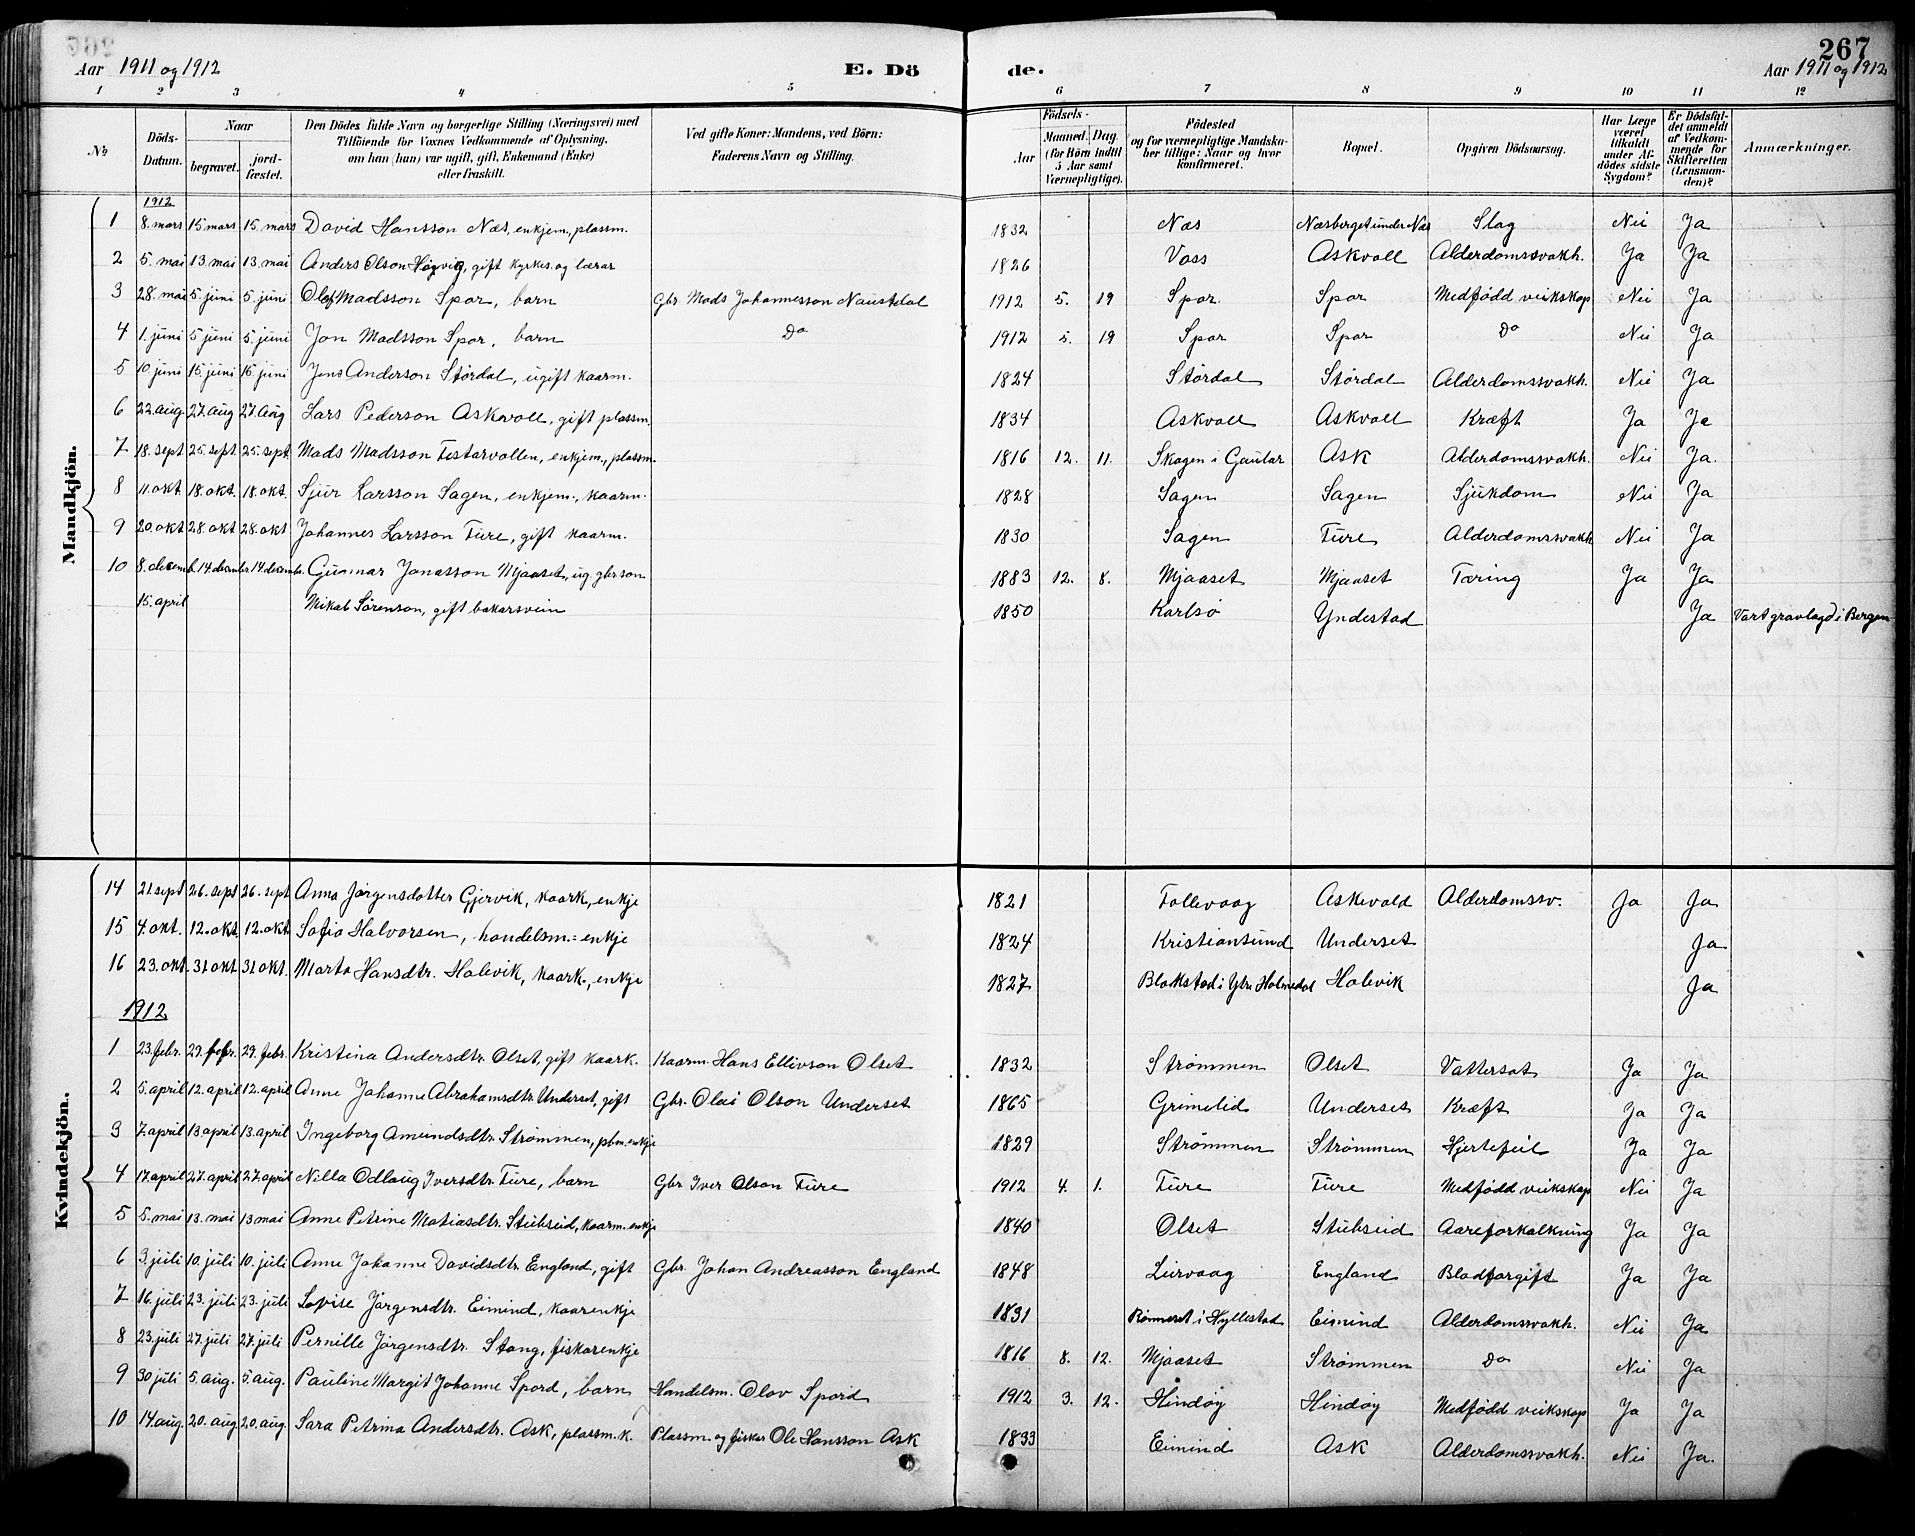 Aar 1911 og 1912 E. Dö de. 267 Aar 1911 og 1912
1 2 3 4 5 6 7 8 9 10 11 12
No Döds-Datum. Naar begravet. jordfæstet. Den Dödes fulde Navn og borgerlige Stilling (Næringsvei) med Tilföiende for Voxnes Vedkommende af Oplysning, om han (hun) var ugift, gift, Enkemand (Enke) eller fraskilt. Ved gifte Koner: Mandens, ved Börn: Faderens Navn og Stilling. Födsels- Aar Maaned. Dag. (for Börn indtil 5 Aar samt Værnepligtige). Födested og for værnepligtige Mandskaber tillige: Naar og hvor konfirmeret. Bopæl. Opgiven Dödsaarsag. Har Læge været tilkaldt under Afdödes sidste Sygdom? Er Dödsfaldet anmeldt af Vedkommende for Skifteretten (Lensmanden)? Anmærkninger.
Mandkjön.
1912
1 8. mars 15. mars 15. mars David Hansson Næs, enkjem., plassm. 1832 Næs Næsberget under Næs Slag Nei Ja
2 5. mai 13. mai 13. mai Anders Olson Høgvig, gift kyrkes. og lærar 1826 Voss Askvoll Alderdomssvakh. Ja Ja
3 28. mai 5. juni 5. juni Olaf Madsson Spor, barn Gbr. Mads Johannesson Naustdal 1912 5. 19 Spor Spor Medfødd veikskap Nei Ja
4 1. juni 5 juni 5. juni Jon Madsson Spor, barn Do 1912 5. 19 Spor Spor Do Nei Ja
5 10 juni 15 juni 15 juni Jens Anderson Størdal, ugift kaarm. 1824 Størdal Størdal Alderdomssvakh. Nei Ja
6 22 aug 27 aug 27. aug Lars Pederson Askevoll, gift plassm. 1834 Askvoll Askvoll Kræft Ja Ja
7 18. sept 25. sept 25. sept. Mads Madsson Festarvollen, enkjem., plassm. 1816 12. 11. Skagen i Gaular Ask Alderdomssvakh. Nei Ja.
8 11. okt 18. okt. 18. okt. Sjur Larsson Sagen, enkjem., kaarm. 1828 Sagen Sagen Sjukdom Nei Ja
9 20. okt 28. okt 28. okt Johannes Larsson Fure, gift kaarm. 1830 Sagen Fure Alderdomssvakh Nei Ja
10 8. decemb. 14. decembr. 14. decembr. Gunnar Jonasson Mjaaset, ug. gbrson 1883 12. 8. Mjaaset Mjaaset Tæring Ja Ja
15. april Mikal Sørenson, gift bakarsvein 1850 Karlsø Yndestad Ja Vart gravlagd i Bergen
Kvindekjön.
14 21 sept 26. sept 26. sept Anna Jørgensdotter Gjervik, kaark., enkje 1821 Follevaag Askevold Alderdomssv. Ja Ja
15 4. okt. 12. okt. 12. okt. Sofia Halvorsen, handelsm.= enkje 1824 Kristiansund Underset Ja
16 23. okt. 31 okt. 31 okt. Marta Hansdtr. Halevik, kaark., enkje 1827 Blakstad i Ytre Holmedal Halevik Ja
1912
1 23. febr. 29. febr. 29. febr. Kristina Andersdtr. Olset, gift kaark. Kaarm. Hans Ellivson Olset 1832 Strømmen Olset Vattersot Ja Ja
2 5. april 12. april 12. april Anne Johanne Abrahamsdtr. Underset, gift Gbr. Olai Olson Underset 1865 Grimelid Underset Kræft Ja Ja
3 7. april 13 april 13. april Ingeborg Amundsdtr. Strømmen, plm. enkje 1829 Strømmen Strømmen Hjertefeil Ja Ja
4 17. april 27. april 27. april Nilla Odlaug Iversdtr. Fure, barn Gbr. Iver Olson Fure 1912 4. 1. Fure Fure Medfødd veikskap Nei Ja
5 5. mai 13. mai 13 mai Anne Petrine Matiasdtr. Stubseid, kaarm. enkje 1840 Olset Stubseid Aareforkalkning Ja Ja
6 3. juli 10. juli 10. juli Anne Johanne Davidsdtr. England, gift Gbr. Johan Andreasson England 1848 Leirvaag England Blodforgift Ja Ja
7 16. juli 23. juli 23. juli Lovise Jørgensdtr. Eimind, kaarenkje 1831 Rønneset i Hyllestad Eimind Alderdomssvakh. Nei Ja
8 23. juli 27. juli 27. juli Pernille Jørgensdtr. Stang, fiskarenkje 1816 8. 12. Mjaaset Strømmen Do Nei Ja
9 30 juli 5. aug. 5. aug. Pauline Margit Johanne Spord, barn Handelsm. Olav Spord 1912 3. 12. Hindøy Hindøy Medfødd veikskap Ja Ja
10 14. aug. 20. aug 20. aug. Sara Petrina Andersdtr. Ask, plassm. k. Plassm. og fiskar Ole Hansson Ask 1833 Eimind Ask Alderdomssvakh. Nei Ja.